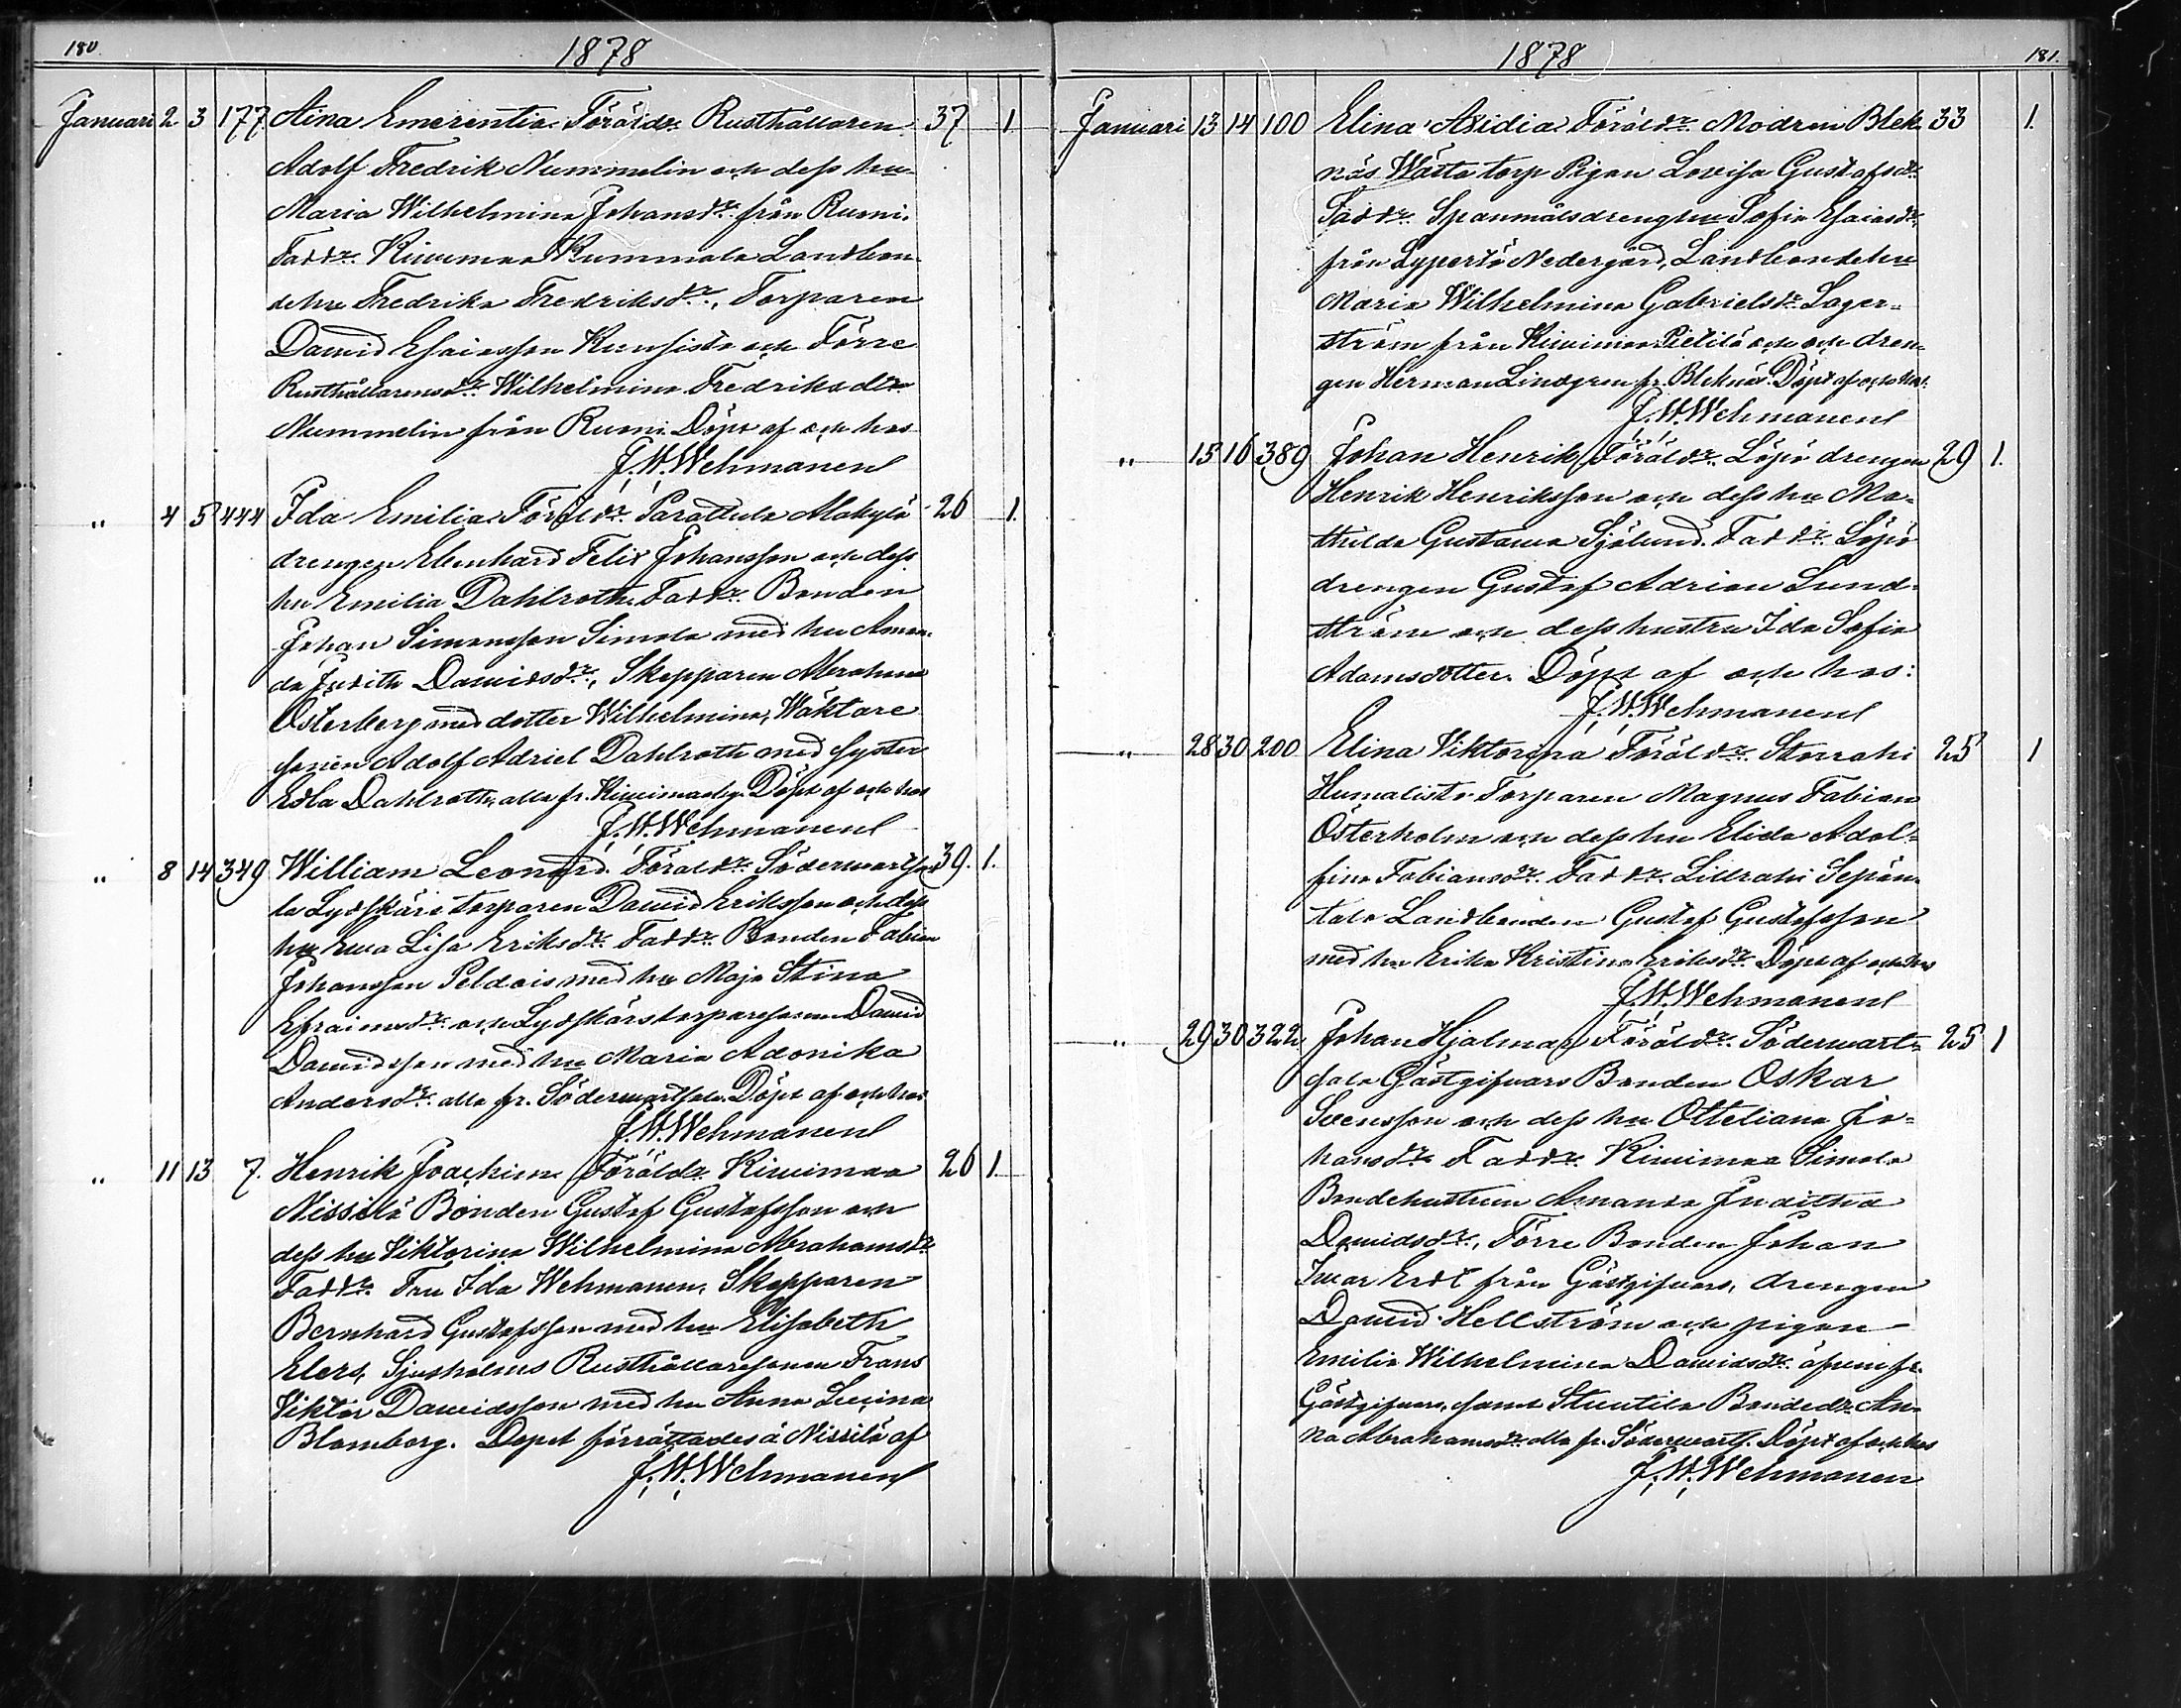 180.
1878
Januari 2 3 177. Aina Emerentia. Föräldr. Rusthållaren 37 1
Adolf Fredrik Nummelin och dess hu
Maria Wilhelmina Johansdr. från Rumi.
Faddr. Kiwimaa Kummala Landbon-
dehu Fredrika Fredriksdr., Torparen
Dawid Esaiasson Kunsisto och Förre
Rusthållarensdr. Wilhelmina Fredriksdtr
Nummelin från Rumi. Döpt af och hos
J. W. Wehmanen
" 4 5 444 Ida Emilia. Föräldr. Parattula Alakylä 26 1.
drengen Ebenhard Felix Johansson och dess
hu Emilia Dahlroth. Faddr. Bonden
Johan Simonsson Simola med hu Aman-
da Judith Dawidsdr., Skepparen Abraham
Österberg med dotter Wilhelmina, Wäktare
sonen Adolf Adriel Dahlroth med syster
Edla Dahlroth, alla fr. Kiwimaa Döpt af och hos
J. W. Wehmanen
" 8 14 349 William Leonard. Föräldr. Söderwartsa- 39. 1.
la Lydskäri torparen Dawid Eriksson och dess
hu Ewa Lisa Eriksdr. Faddr. Bonden Fabian
Johansson Peldais med hu Maja Stina
Efraimsdr. och Lydskärs torparesonen Dawid
Dawidsson med hu Maria Adonika
Andersdr. alla fr. Söderwartsala. Döpt af och hos
J. W. Wehmanen
" 11 13 7. Henrik Joachim. Föräldr. Kiwimaa 26 1.
Nissilä Bonden Gustaf Gustafsson och
dess hu Viktorina Wilhelmina Abrahamsdr.
Faddr. Fru Ida Wehmanen, Skepparen
Bernhard Gustafsson med hu Elisabeth
Elers, Sjusholms Rusthållaresonen Frans
Viktor Dawidsson med hu Anna Lucina
Blomborg. Dopet förrättades å Nissilä af
J. W. Wehmanen
1878
181.
Januari 13 14 100 Elina Axidia. Föräldr. Modren Blek- 33 1.
näs Wästa torp Pigan Lovisa Gustafsdr.
Faddr. Spanmålsdrenghu Sofia Esaiasdr.
från Lypertö Nedergård, Landbondehu
Maria Wilhelmina Gabrielsdr. Lager-
ström från Kiwimaa Pietilä och och dren-
gen Herman Lindgren fr. Bleknäs. Döpt af och hos.
J. W. Wehmanen
" 15 16 389 Johan Henrik. Föräldr. Löpö drengen 29 1.
Henrik Henriksson och dess hu Ma-
thilda Gustawa Sjölund. Faddr. Löpö
drengen Gustaf Adrian Lund-
ström och dess hustru Ida Sofia
Adamsdotter. Döpt af och hos:
J. W. Wehmanen
" 28 30 200 Elina Viktorina Föräldr. Storrahi 25 1
Humalisto Torparen Magnus Fabian
Österholm och dess hu Elida Adol-
fina Fabiansdr. Faddr. Lillrahi Sepän-
talo Landbonden Gustaf Gustafsson
med hu Erika Kristina Eriksdr. Döpt af och hos
J. W. Wehmanen
" 29 30 322 Johan Hjalmar Föräldr. Söderwart- 25 1
sala Gästgifwars Bonden Oskar
Svensson och dess hu Otteliana Jo-
hansdr. Faddr. Kiwimaa Simola
Bondehustrun Amanda Juditha
Dawidsdr., Förre Bonden Johan
Iwar Erdt från Gästgifwars, drengen
Dawid Hellström och pigan
Emilia Wilhelmina Dawidsdr. äfven fr.
Gästgifwars, samt Stuutila Bondedr. An-
na Abrahamsdr. alla fr. Söderwarts. Döpt af och hos
J. W. Wehmanen